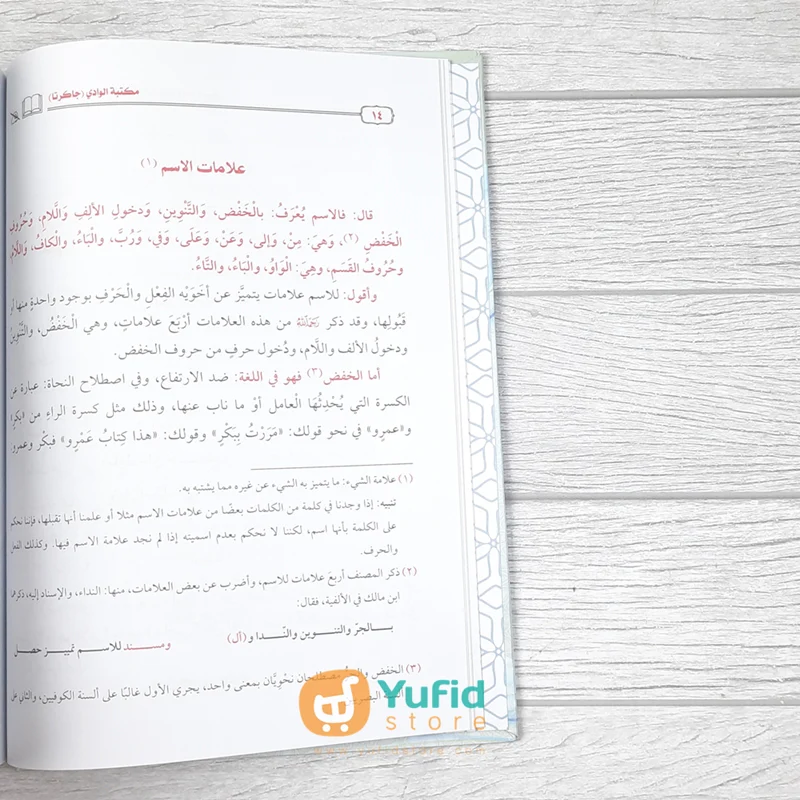 مكتبة الوادي (جاكرتا)
١٤
علامات الاسم (١)
قال: فالاسم يُعْرَفُ: بالْخَفْضِ، وَالتَّنْوِينِ، وَدخولِ الألِفِ وَالَّلامِ، وَحُرُوفِ
الْخَفْضِ (٢)، وَهيَ: مِنْ، وَإلى، وَعَنْ، وَعَلَى، وَفي، وَرُبَّ، والْبَاءُ، والْكافُ، وَاللَّامُ،
وحُرُوفُ القَسَمِ، وهيَ: الْوَاوُ، والْبَاءُ، والتَّاءُ.
وأقول: للاسم علامات يتميَّز عن أخَوَيْه الفِعْلِ والْحَرْفِ بوجود واحدةٍ منها أو
قَبُولِها، وقد ذكر رحمه الله من هذه العلامات أرْبَعَ علاماتٍ، وهي الْخَفْضُ، والتَّنْوِينُ
ودخولُ الألف واللَّام، ودُخول حرفٍ من حروف الخفض.
أما الخفض (٣) فهو في اللغة: ضد الارتفاع، وفي اصطلاح النحاة: عبارة عن
الكسرة التي يُحْدِثُهَا الْعامل أوْ ما ناب عنها، وذلك مثل كسرة الراءِ من «بكرٍ»
و«عمرٍو» في نحو قولك: «مَرَرْتُ بِبَكْرٍ» وقولك: «هذا كِتابُ عَمْرٍو» فبَكْر وعمرو
(١) علامة الشيء: ما يتميز به الشيء عن غيره مما يشتبه به.
تنبيه: إذا وجدنا في كلمة من الكلمات بعضًا من علامات الاسم مثلا أو علمنا أنها تقبلها، فإننا نحكم
على الكلمة بأنها اسم، لكننا لا نحكم بعدم اسميته إذا لم نجد علامة الاسم فيها. وكذلك الفعل
والحرف.
(٢) ذكر المصنف أربعَ علامات للاسم، وأضرب عن بعض العلامات، منها: النداء، والإسناد إليه، ذكرها
ابن مالك في الألفية، فقال:
بـالجرّ والتنـوين والنّـدا و(أل) ومسـند للاسـم تمييـز حصل
(٣) الخفض مصطلحان نحويَّان بمعنى واحد، يجري الأول غالبًا على ألسنة الكوفيين، والثاني على
ألسنة
Yufid
store